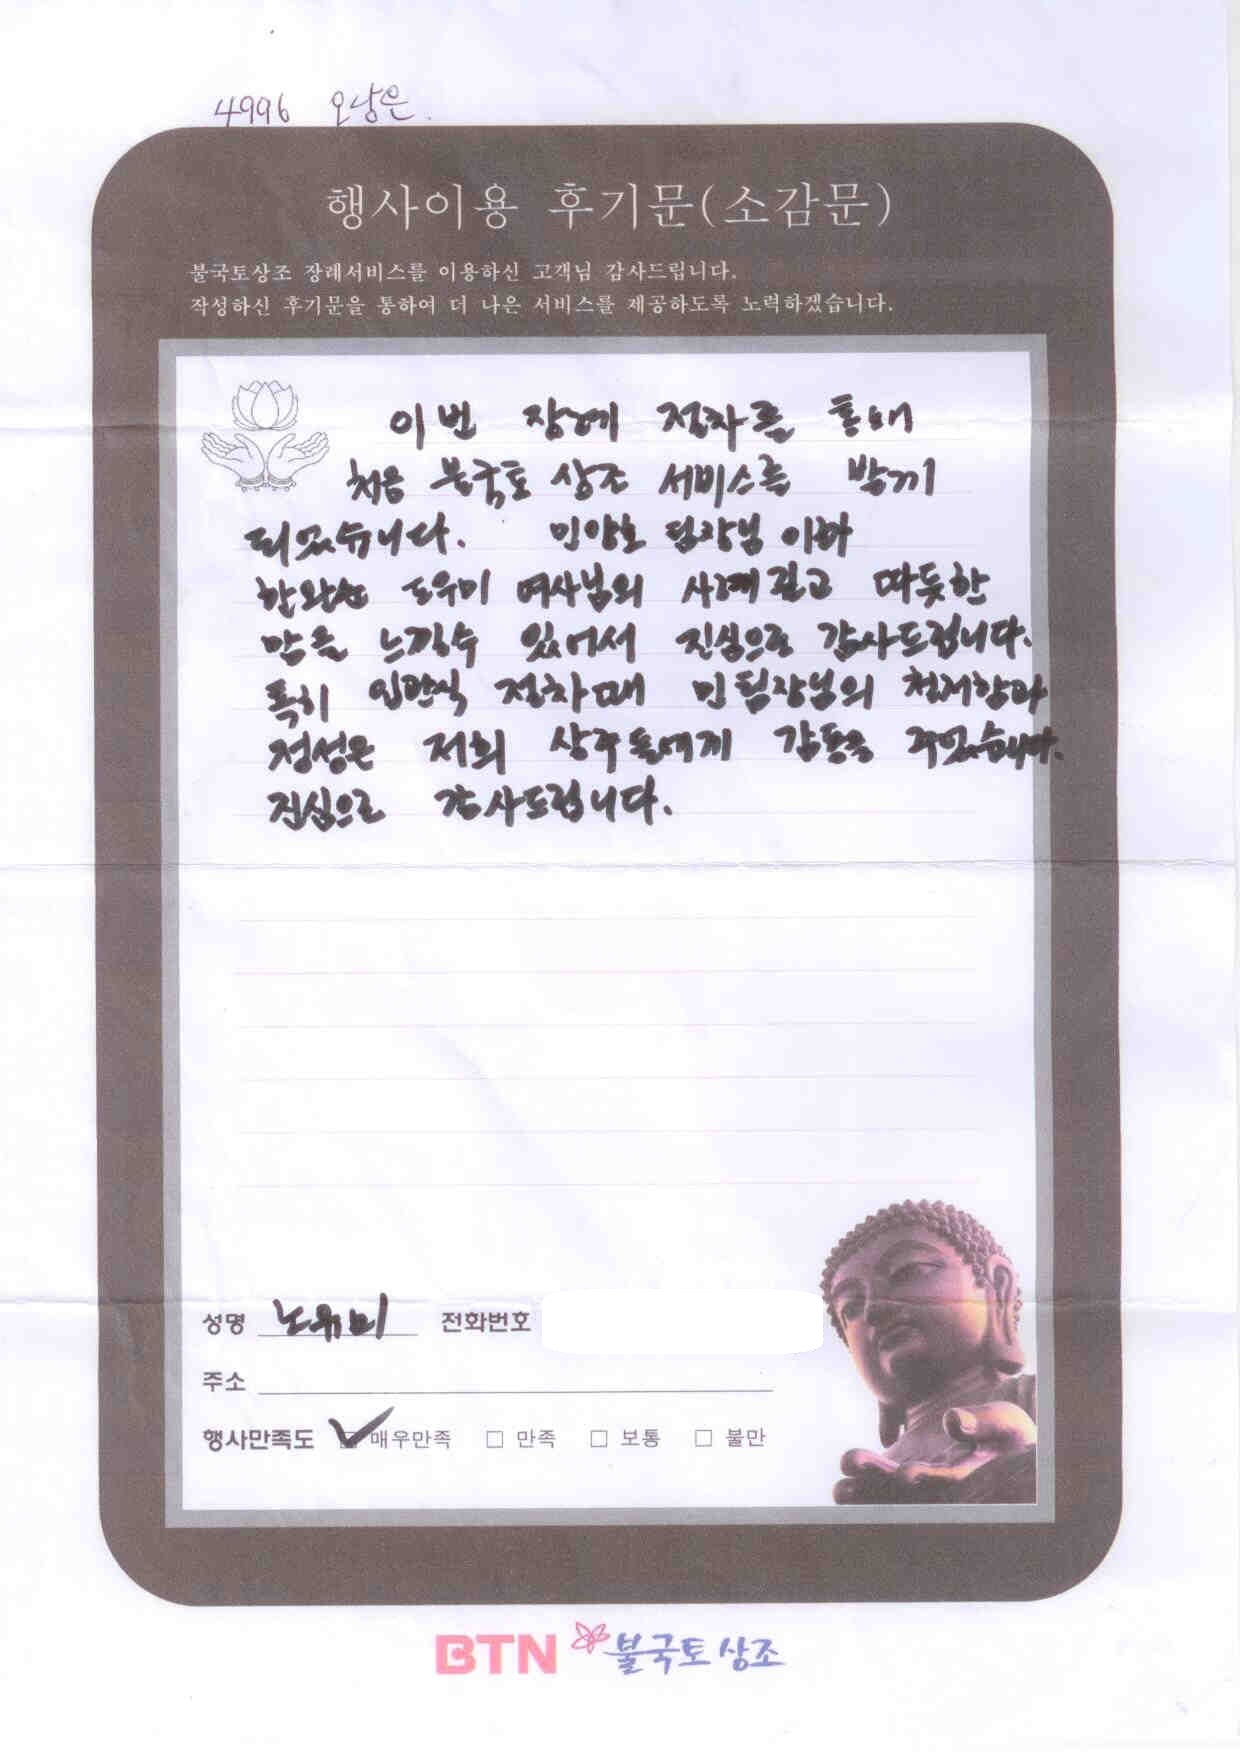 4996 오남은.
행사이용 후기문(소감문)
불국토상조 장례서비스를 이용하신 고객님 감사드립니다.
작성하신 후기문을 통하여 더 나은 서비스를 제공하도록 노력하겠습니다.
이번 장례 절차를 통해
처음 불국토 상조 서비스를 받게
되었습니다. 민양호 팀장님 이하
한완순 도우미 여사님의 사려깊고 따듯한
맘을 느낄수 있어서 진심으로 감사드립니다.
특히 입관식 절차때 민팀장님의 철저함과
정성은 저희 상주들에게 감동을 주었습니다.
진심으로 감사드립니다.
성명 노유미 전화번호
주소
행사만족도 매우만족 □ 만족 □ 보통 □ 불만
BTN 불국토상조